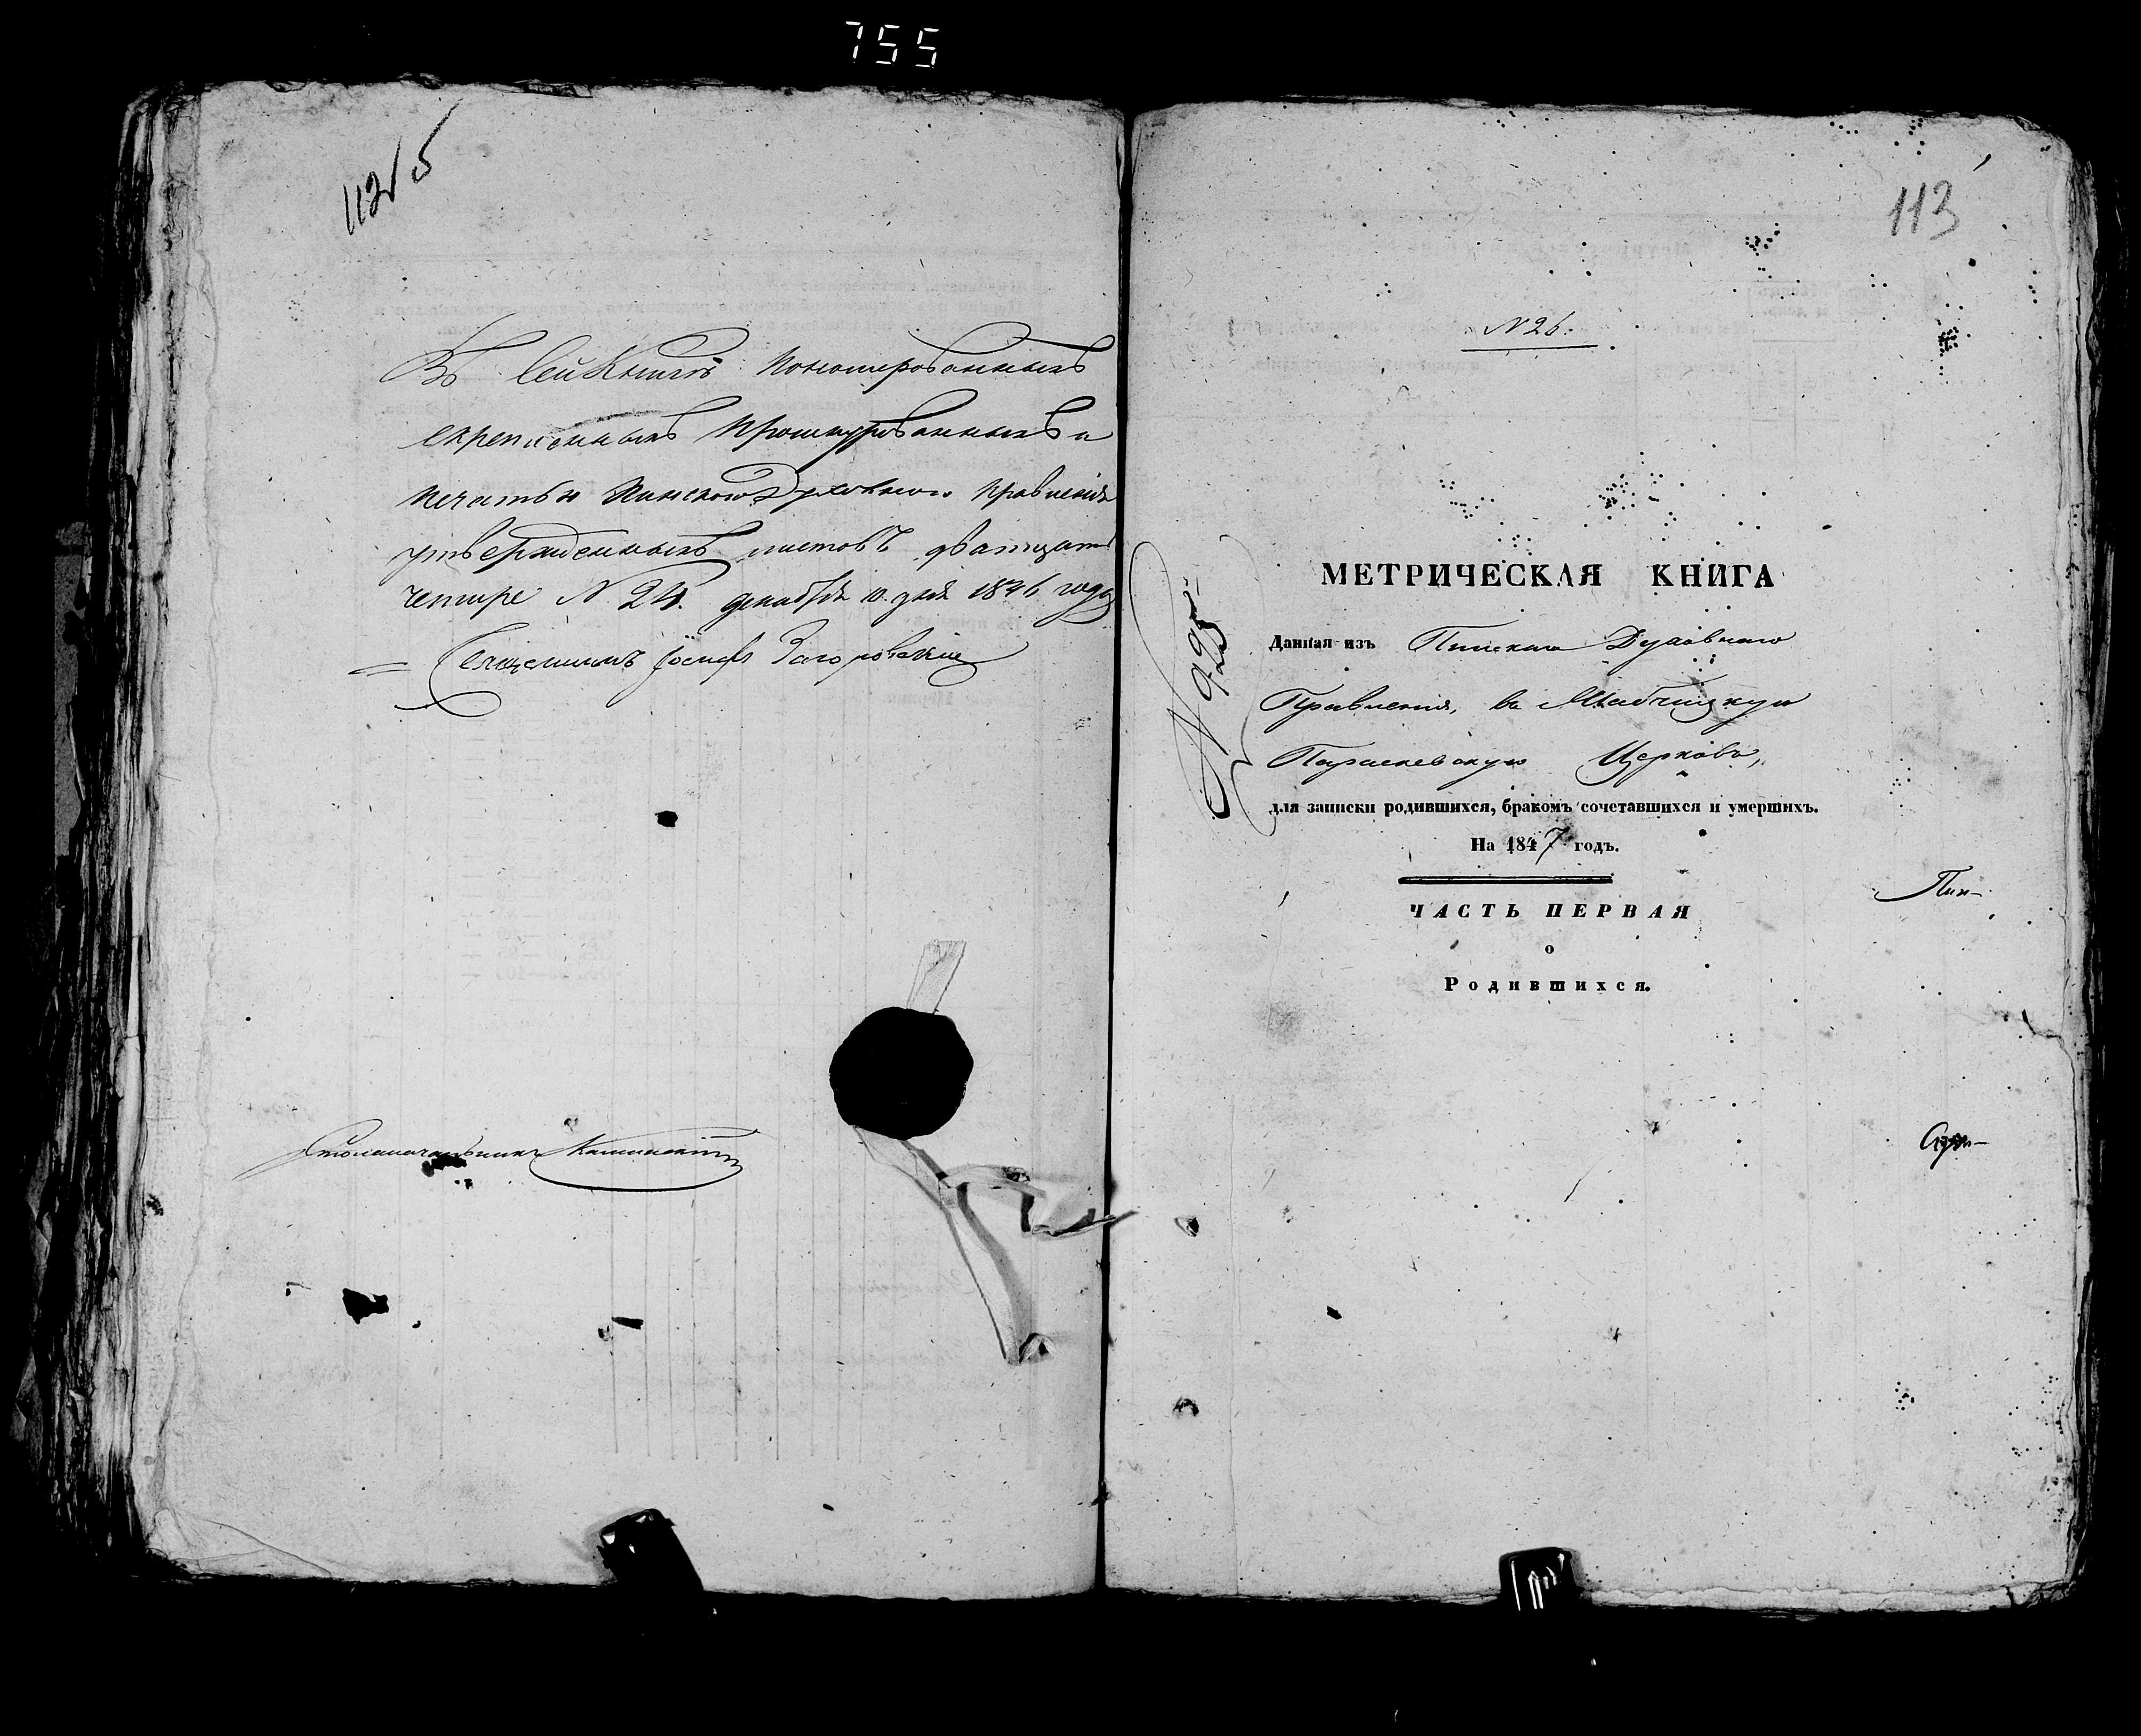 755
112об
Въ сей Книгѣ пономерованныхъ
скрепленныхъ прошнурованныхъ и
печатью Пинского Духовного правленія
утвержденныхъ листовъ дватцать
четире N 24. декабря 10. дня 1846 года
Священникъ Іосифъ
Столоначальникъ
113
N 26.
МЕТРИЧЕСКАЯ КНИГА
Данная изъ Пинскаго Духовнаго
Правленія, въ
Параскевскую Церковь,
для записки родившихся, бракомъ сочетавшихся и умершихъ.
На 1847 годъ.
ЧАСТЬ ПЕРВАЯ
о
Родившихся.
N 995
Пин-